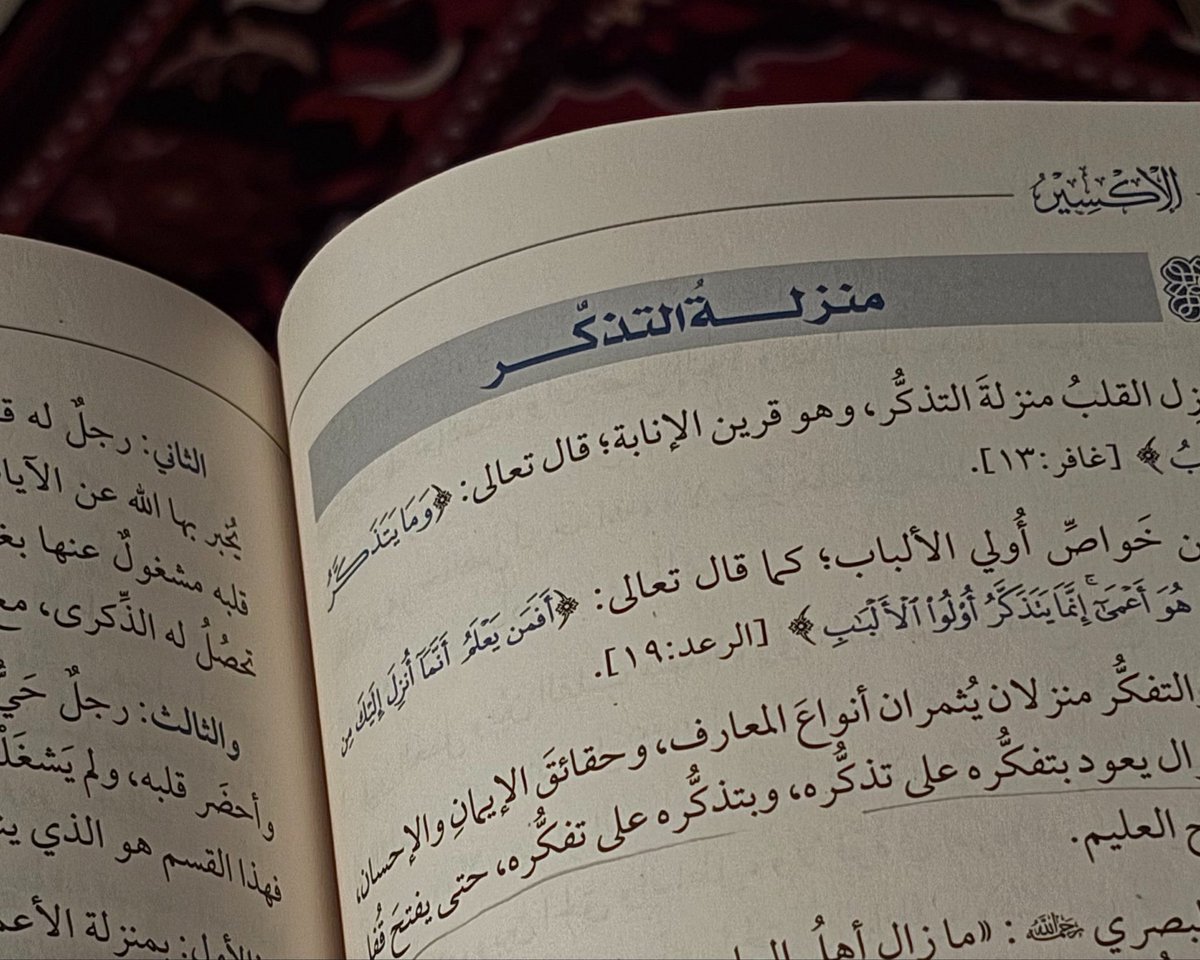 الإكسير
منزلة التذكّر
القلبُ منزلةَ التذكُّر، وهو قرين الإنابة؛ قال تعالى: ﴿وَمَا يَتَذَكَّرُ
﴾ [غافر:١٣].
خَواصِّ أُولي الألباب؛ كما قال تعالى: ﴿أَفَمَن يَعْلَمُ أَنَّمَآ أُنزِلَ إِلَيْكَ مِن
هُوَ أَعْمَىٰٓ ۚ إِنَّمَا يَتَذَكَّرُ أُوْلُواْ ٱلْأَلْبَٰبِ﴾ [الرعد:١٩].
التفكُّر منزلان يُثمران أنواعَ المعارف، وحقائقَ الإيمانِ والإحسان،
يعود بتفكُّره على تذكُّره، وبتذكُّره على تفكُّره، حتى يفتحَ قُفل
العليم.
: «ما زال أهلُ
الثاني: رجلٌ له
يُخبر بها الله عن
قلبه مشغولٌ عنها
تحصُلُ له الذِّكرى،
والثالث: رجلٌ
وأحضَر قلبه، ولم
فهذا القسم هو الذي
بمنزلة